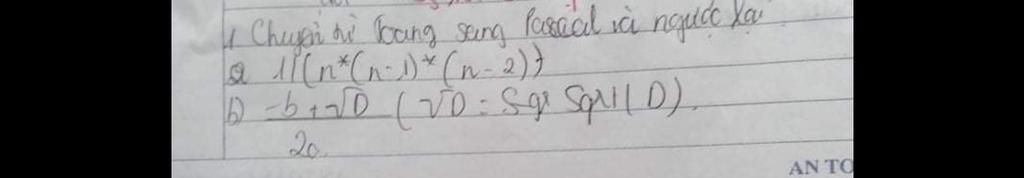 1 Chuyển từ Toang sang Pascal và ngược lại
a 1/(n*(n-1)*(n-2))
b) -b+√D / 2a (√D = Sqr Sqrt(D).
AN TO